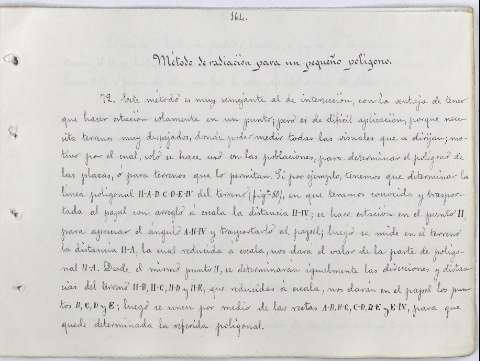 164.
Método de radiación para un pequeño polígono.
72. Este método es muy semejante al de intersección, con la ventaja de tener
que hacer estación solamente en un punto; pero es de difícil aplicación, porque nece-
sita terrenos muy despejados, donde poder medir todas las visuales que se dirijan; mo-
tivo por el cual, solo se hace uso en las poblaciones, para determinar el polígono de
las plazas, ó para terrenos que lo permitan. Si por ejemplo, tenemos que determinar la
línea poligonal II-A-B-C-D-E-IV del terreno (figª 50), en que tenemos conocida y traspor-
tada al papel con arreglo á escala la distancia II-IV; se hace estación en el punto II,
para apreciar el ángulo A-II-IV y trasportarlo al papel; luego se mide en el terreno
la distancia II-A, la cual reducida a escala, nos dará el valor de la parte de poligo-
nal II-A. Desde el mismo punto II, se determinarán igualmente las direcciones y distan-
cias del terreno II-B, II-C, II-D y II-E, que reducidas á escala, nos darán en el papel los pun-
tos B, C, D y E; luego se unen por medio de las rectas A-B, B-C, C-D, D-E y E-IV, para que
quede determinada la referida poligonal.